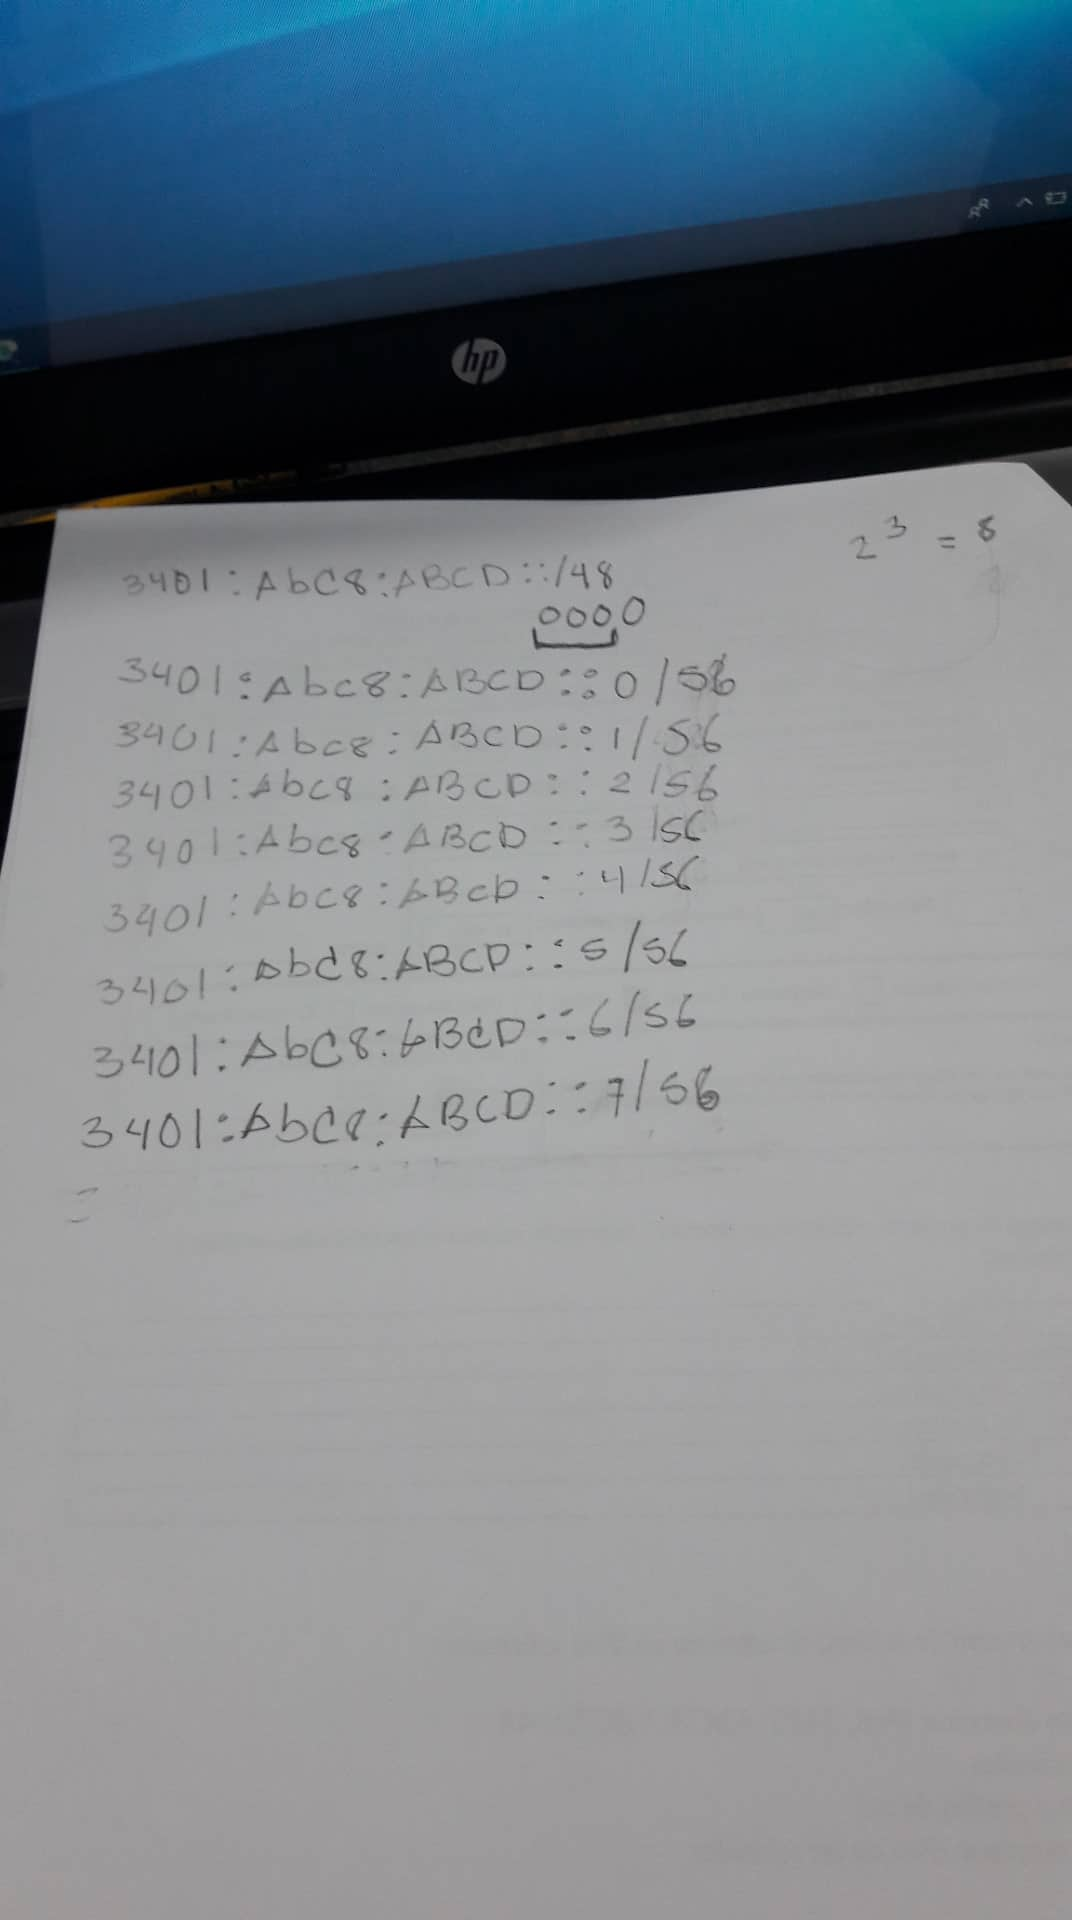 hp
2³ = 8
3401:AbC8:ABCD::/48
0000
3401:Abc8:ABCD::0/56
3401:Abc8:ABCD::1/56
3401:Abc8:ABCD::2/56
3401:Abc8:ABCD::3/56
3401:Abc8:ABcD::4/56
3401:Abd8:ABCD::5/56
3401:AbC8:ABCD::6/56
3401:AbC8:ABCD::7/56